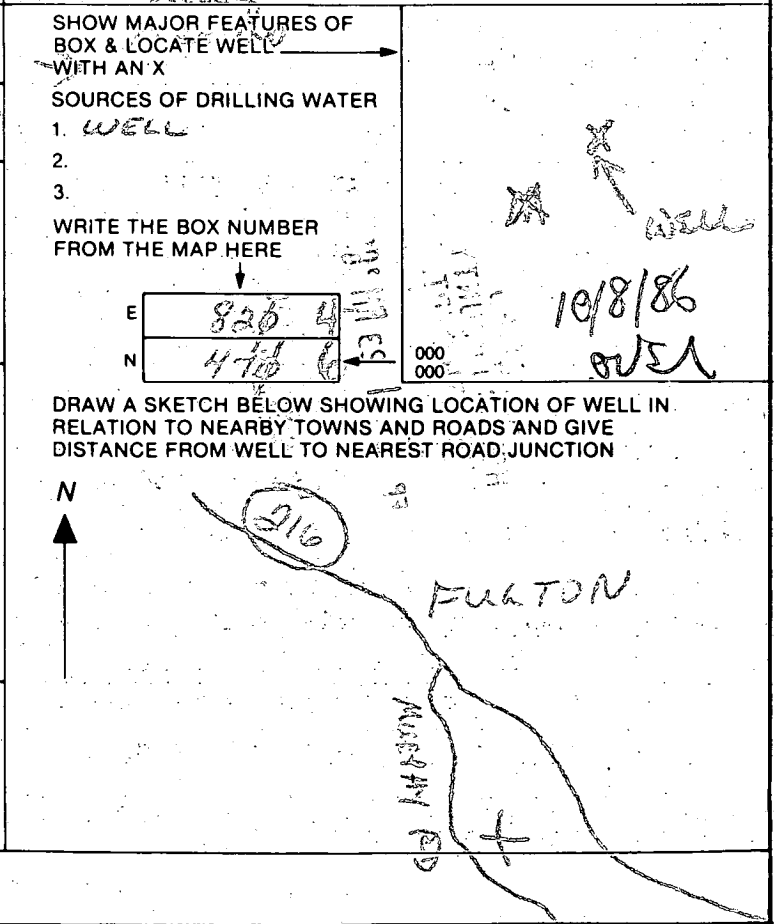 SHOW MAJOR FEATURES OF
BOX & LOCATE WELL
WITH AN X
SOURCES OF DRILLING WATER
1. WELL
2.
3.
WRITE THE BOX NUMBER
FROM THE MAP HERE
E 826 4
N 476 6
000
000
X
WELL
10/8/86
DRAW A SKETCH BELOW SHOWING LOCATION OF WELL IN
RELATION TO NEARBY TOWNS AND ROADS AND GIVE
DISTANCE FROM WELL TO NEAREST ROAD JUNCTION
N
216
FULTON
MURPHY RD